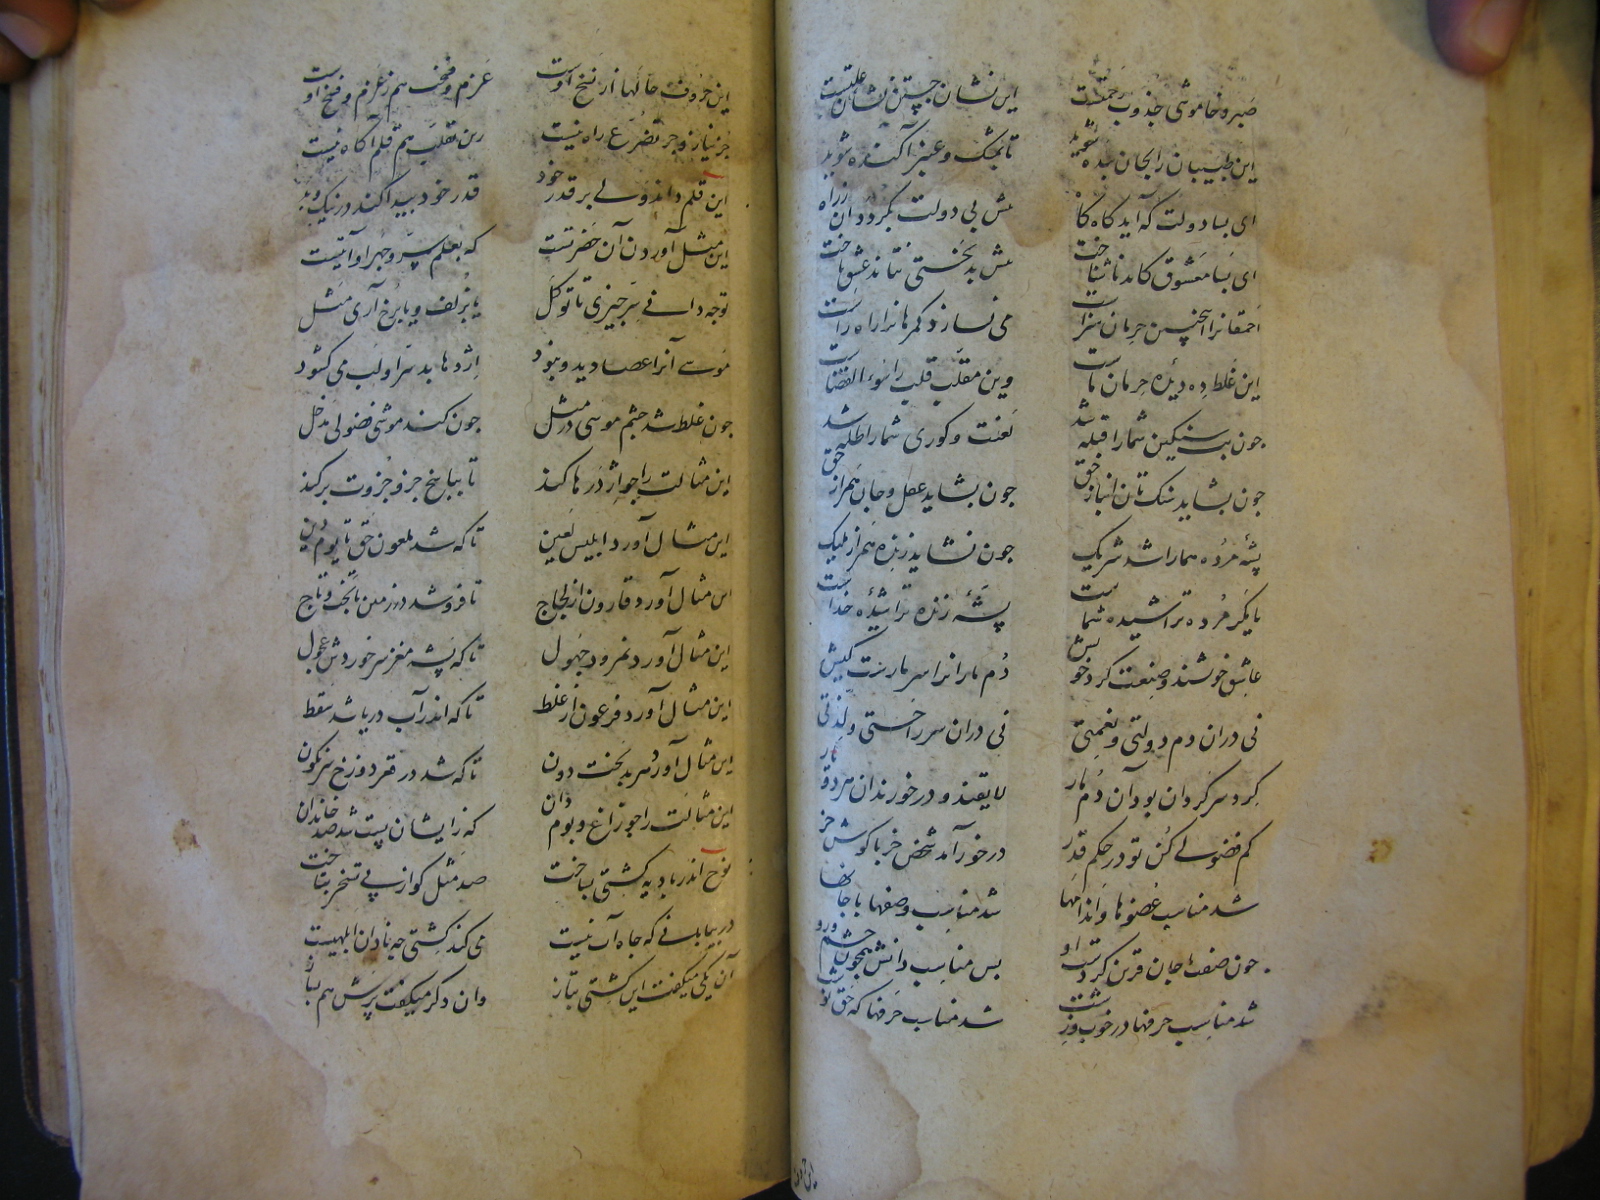 صبر و خاموشی جذوب رحمتست
این نشان جستن نشان علتست
این طبیبان را بجان بنده شوید
تا بمشک و عنبر آکنده شوید
ای بسا دولت که آید گاه گاه
پیش بی دولت بگردد آن ز راه
ای بسا معشوق کاید ناشناخت
پیش بدبختی نتاند عشق باخت
احمقانرا اینچنین حرمان سزاست
می نسازد کمرهانرا راه راست
این غلط ده دیدهٔ حرمان ماست
وین مقلب قلب را سوء القضاست
چون بت سنگین شما را قبله شد
لعنت و کوری شما را ظله شد
چون بشاید سنگ تان انباز حق
چون نشاید عقل و جان همراز حق
پشهٔ مرده هما را شد شریک
چون نشاید زنده همراز ملیک
یا مگر مرده تراشیده شماست
پشهٔ زنده تراشیدهٔ خداست
عاشق خویشند و صنعت کرد خویش
دم ماران را سر مارست کیش
نی در آن دم دولتی و نعمتی
نی در آن سر راحتی و لذتی
گرد سر گردان بود آن دم مار
لایقند و درخورند آن هر دو یار
کم فضولی کن تو در حکم قدر
درخور آمد شخص خر با گوش خر
شد مناسب عضوها و اندامها
شد مناسب وصفها با جانها
چون صفت با جان قرین کردست او
پس مناسب دانش همچون چشم و رو
شد مناسب حرفها در خوب و زشت
شد مناسب حرفها که حق نوشت
این حروف حالها از نسخ اوست
عزم و فسخت هم ز عزم و فسخ اوست
جز نیاز و جز تضرع راه نیست
زین تقلب هم قلم آگاه نیست
این قلم داند ولی بر قدر خود
قدر خود پیدا کند در نیک و بد
این مثل آوردن آن حضرتست
که بعلم سر و جهر او آیتست
تو چه دانی سر چیزی تا تو کل
یا بزلف و یا برخ آری مثل
موسی آنرا عصا دید و نبود
اژدها بد سر او لب می گشود
چون غلط شد چشم موسی در مثل
چون کند موشی فضولی مدخل
این مثالت را چو اژدرها کند
تا بپاسخ جزو جزوت بر کند
این مثال آورد ابلیس لعین
تا که شد ملعون حق تا یوم دین
این مثال آورد قارون از لجاج
تا فرو شد در زمین با تخت و تاج
این مثال آورد نمرود جهول
تا که پشه مغز سر خوردش عجول
این مثال آورد فرعون از غلط
تا که اندر آب دریا شد سقط
این مثال آورد هر بدبخت دون
تا که شد در قعر دوزخ سرنگون
این مثالت را چو زاغ و بوم دان
که ز ایشان پست شد صد خاندان
نوح اندر بادیه کشتی بساخت
صد مثل گو از پی تسخر بتاخت
در بیابانی که چاه آب نیست
می کند کشتی چه نادان ابلهیست
آن یکی میگفت این کشتی بتاز
وان دگر میگفت پرش هم بساز